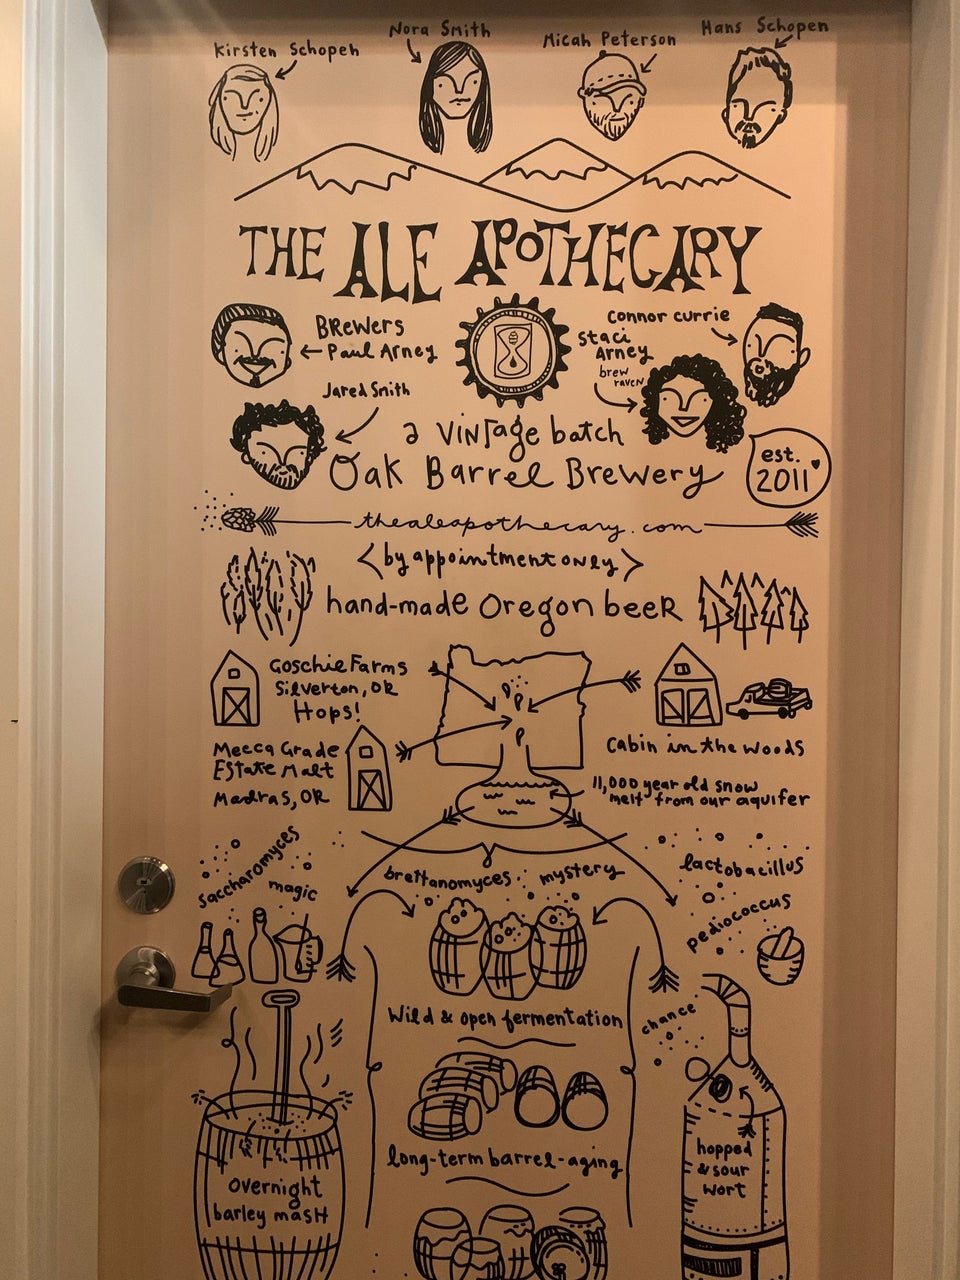 Kirsten Schopen
Nora Smith
Micah Peterson
Hans Schopen
THE ALE APOTHECARY
BREWERS
Paul Arney
Jared Smith
Connor currie
Staci
Arney
brew
raven
a vintage batch
Oak Barrel Brewery
est.
2011
thealeapothecary.com
<by appointment only>
hand-made Oregon beer
Goschie Farms
Silverton, OR
Hops!
Mecca Grade
Estate Malt
Madras, OR
Cabin in the woods
11,000 year old snow
melt from our aquifer
saccharomyces
magic
brettanomyces
mystery
lactobacillus
pediococcus
Wild & open fermentation
chance
long-term barrel-aging
overnight
barley mash
hopped
& sour
wort